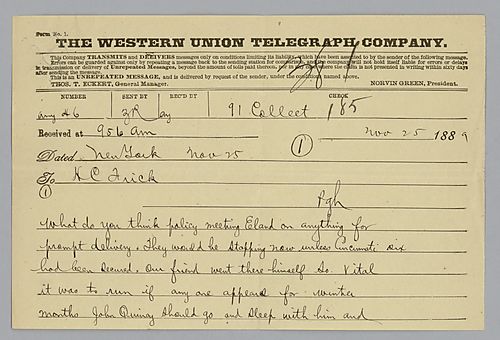 Form No. 1.
THE WESTERN UNION TELEGRAPH COMPANY.
This Company TRANSMITS and DELIVERS messages only on conditions limiting its liability, which have been assented to by the sender of the following message.
Errors can be guarded against only by repeating a message back to the sending station for comparison, and the company will not hold itself liable for errors or delays
in transmission or delivery of Unrepeated Messages, beyond the amount of tolls paid thereon, nor in any case where the claim is not presented in writing within sixty days
after sending the message.
This is an UNREPEATED MESSAGE, and is delivered by request of the sender, under the conditions named above.
THOS. T. ECKERT, General Manager. NORVIN GREEN, President.
NUMBER SENT BY REC'D BY CHECK
91 Collect 185
Received at 956 am 1 Nov 25 1889
Dated New York Nov 25
To H C Frick
1
Pgh
What do you think policy meeting on anything for
prompt delivery. They would be stopping now unless Cincinnati six
had been secured. Our friend went there himself So. Vital
it was to run if any one appears for winter
months John Quincy should go and sleep with him and